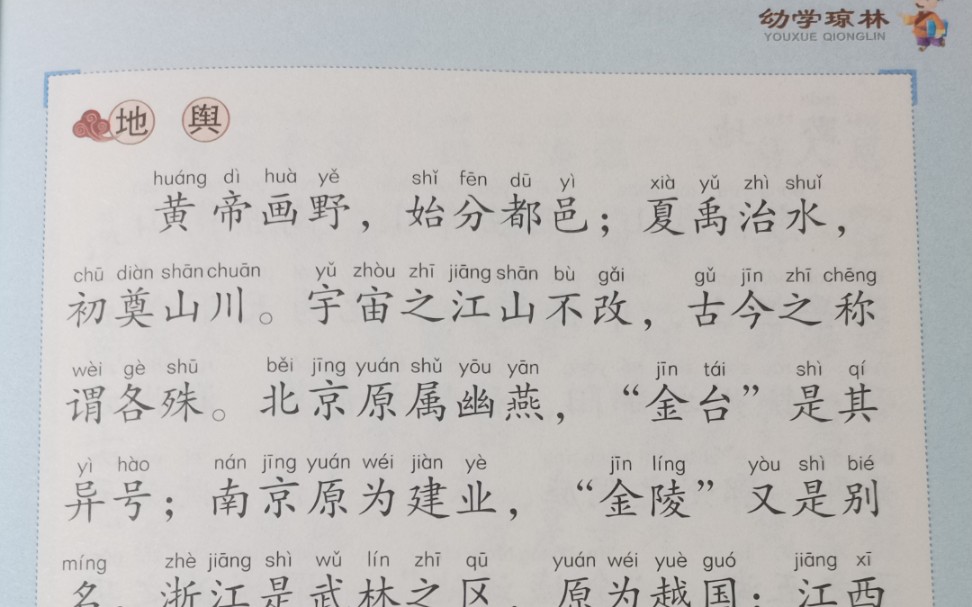 幼学琼林
YOUXUE QIONGLIN
地 舆
huáng dì huà yě shǐ fēn dū yì xià yǔ zhì shuǐ
黄帝画野，始分都邑；夏禹治水，
chū diàn shān chuān yǔ zhòu zhī jiāng shān bù gǎi gǔ jīn zhī chēng
初奠山川。宇宙之江山不改，古今之称
wèi gè shū běi jīng yuán shǔ yōu yān jīn tái shì qí
谓各殊。北京原属幽燕，“金台”是其
yì hào nán jīng yuán wéi jiàn yè jīn líng yòu shì bié
异号；南京原为建业，“金陵”又是别
míng zhè jiāng shì wǔ lín zhī qū yuán wéi yuè guó jiāng xī
名。浙江是武林之区，原为越国；江西